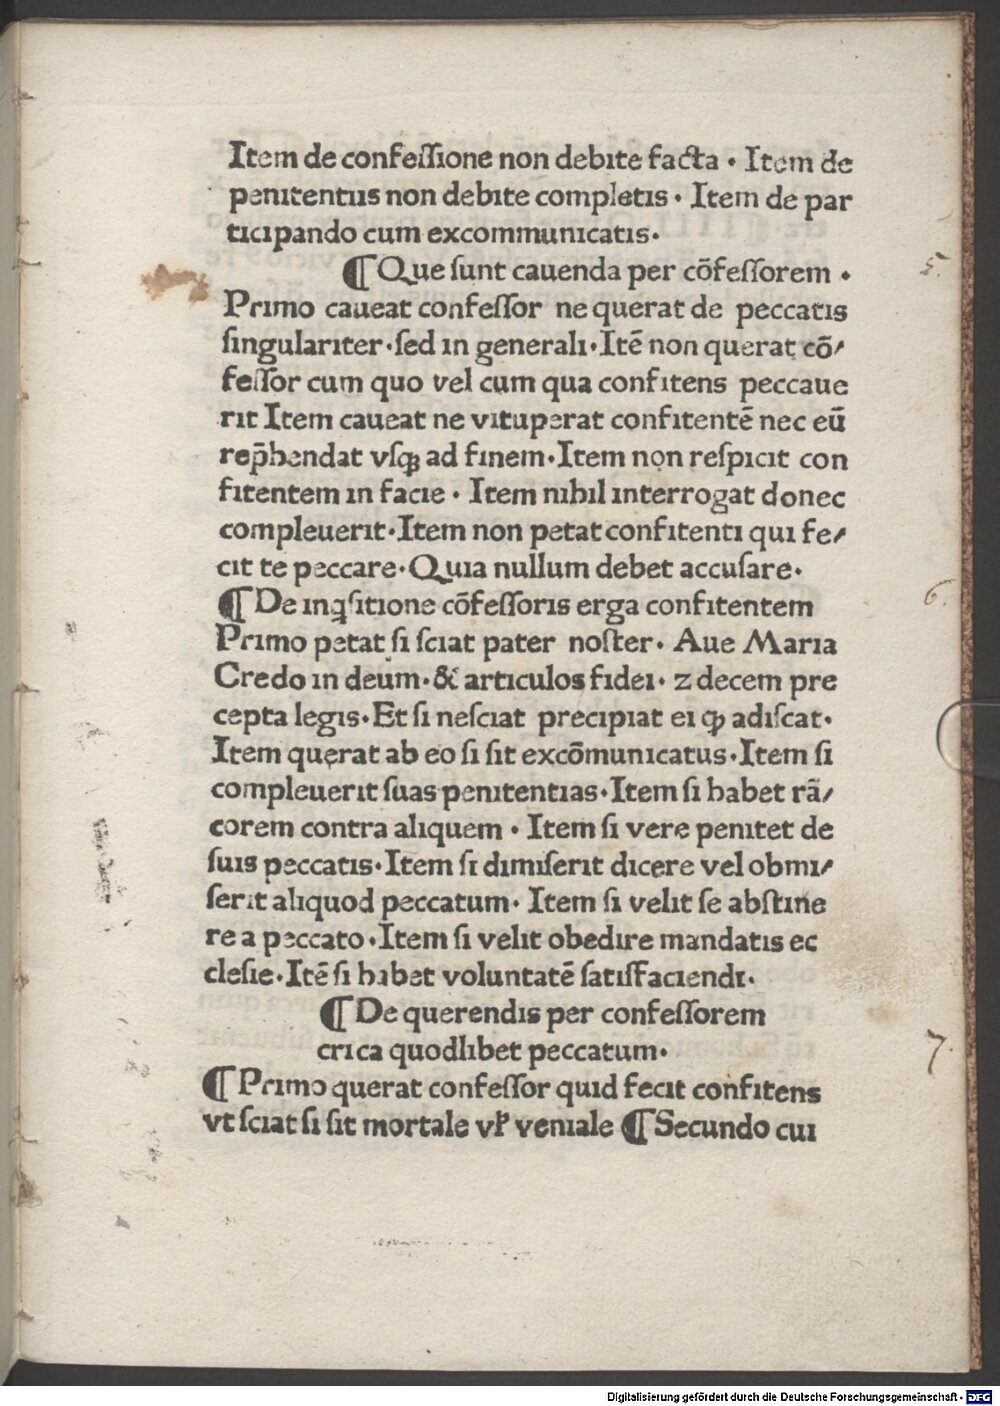 Item de confeſſione non debite facta · Item de
penitentiis non debite completis · Item de par
ticipando cum excommunicatis·
¶ Que ſunt cauenda per cōfeſſorem ·
5.
Primo caueat confeſſor ne querat de peccatis
ſingulariter·ſed in generali·Itē non querat cō/
feſſor cum quo vel cum qua confitens peccaue
rit Item caueat ne vituperat confitentē nec eū
rep̄hendat vſqꝫ ad finem·Item non reſpicit con
fitentem in facie · Item nihil interrogat donec
compleuerit·Item non petat confitenti qui fe/
cit te peccare·Quia nullum debet accuſare·
¶ De inqſitione cōfeſſoris erga confitentem
6.
Primo petat ſi ſciat pater noſter· Aue Maria
Credo in deum·& articulos fidei· z decem pre
cepta legis·Et ſi neſciat precipiat ei ꝙ adiſcat·
Item querat ab eo ſi ſit excōmunicatus·Item ſi
compleuerit ſuas penitentias·Item ſi habet rā/
corem contra aliquem · Item ſi vere penitet de
ſuis peccatis·Item ſi dimiſerit dicere vel obmi/
ſerit aliquod peccatum· Item ſi velit ſe abſtine
re a peccato·Item ſi velit obedire mandatis ec
cleſie·Itē ſi habet voluntatē ſatiſfaciendi·
¶ De querendis per confeſſorem
crica quodlibet peccatum·
7.
¶ Primo querat confeſſor quid fecit confitens
vt ſciat ſi ſit mortale vl̕ veniale ¶ Secundo cui
Digitalisierung gefördert durch die Deutsche Forschungsgemeinschaft · DFG